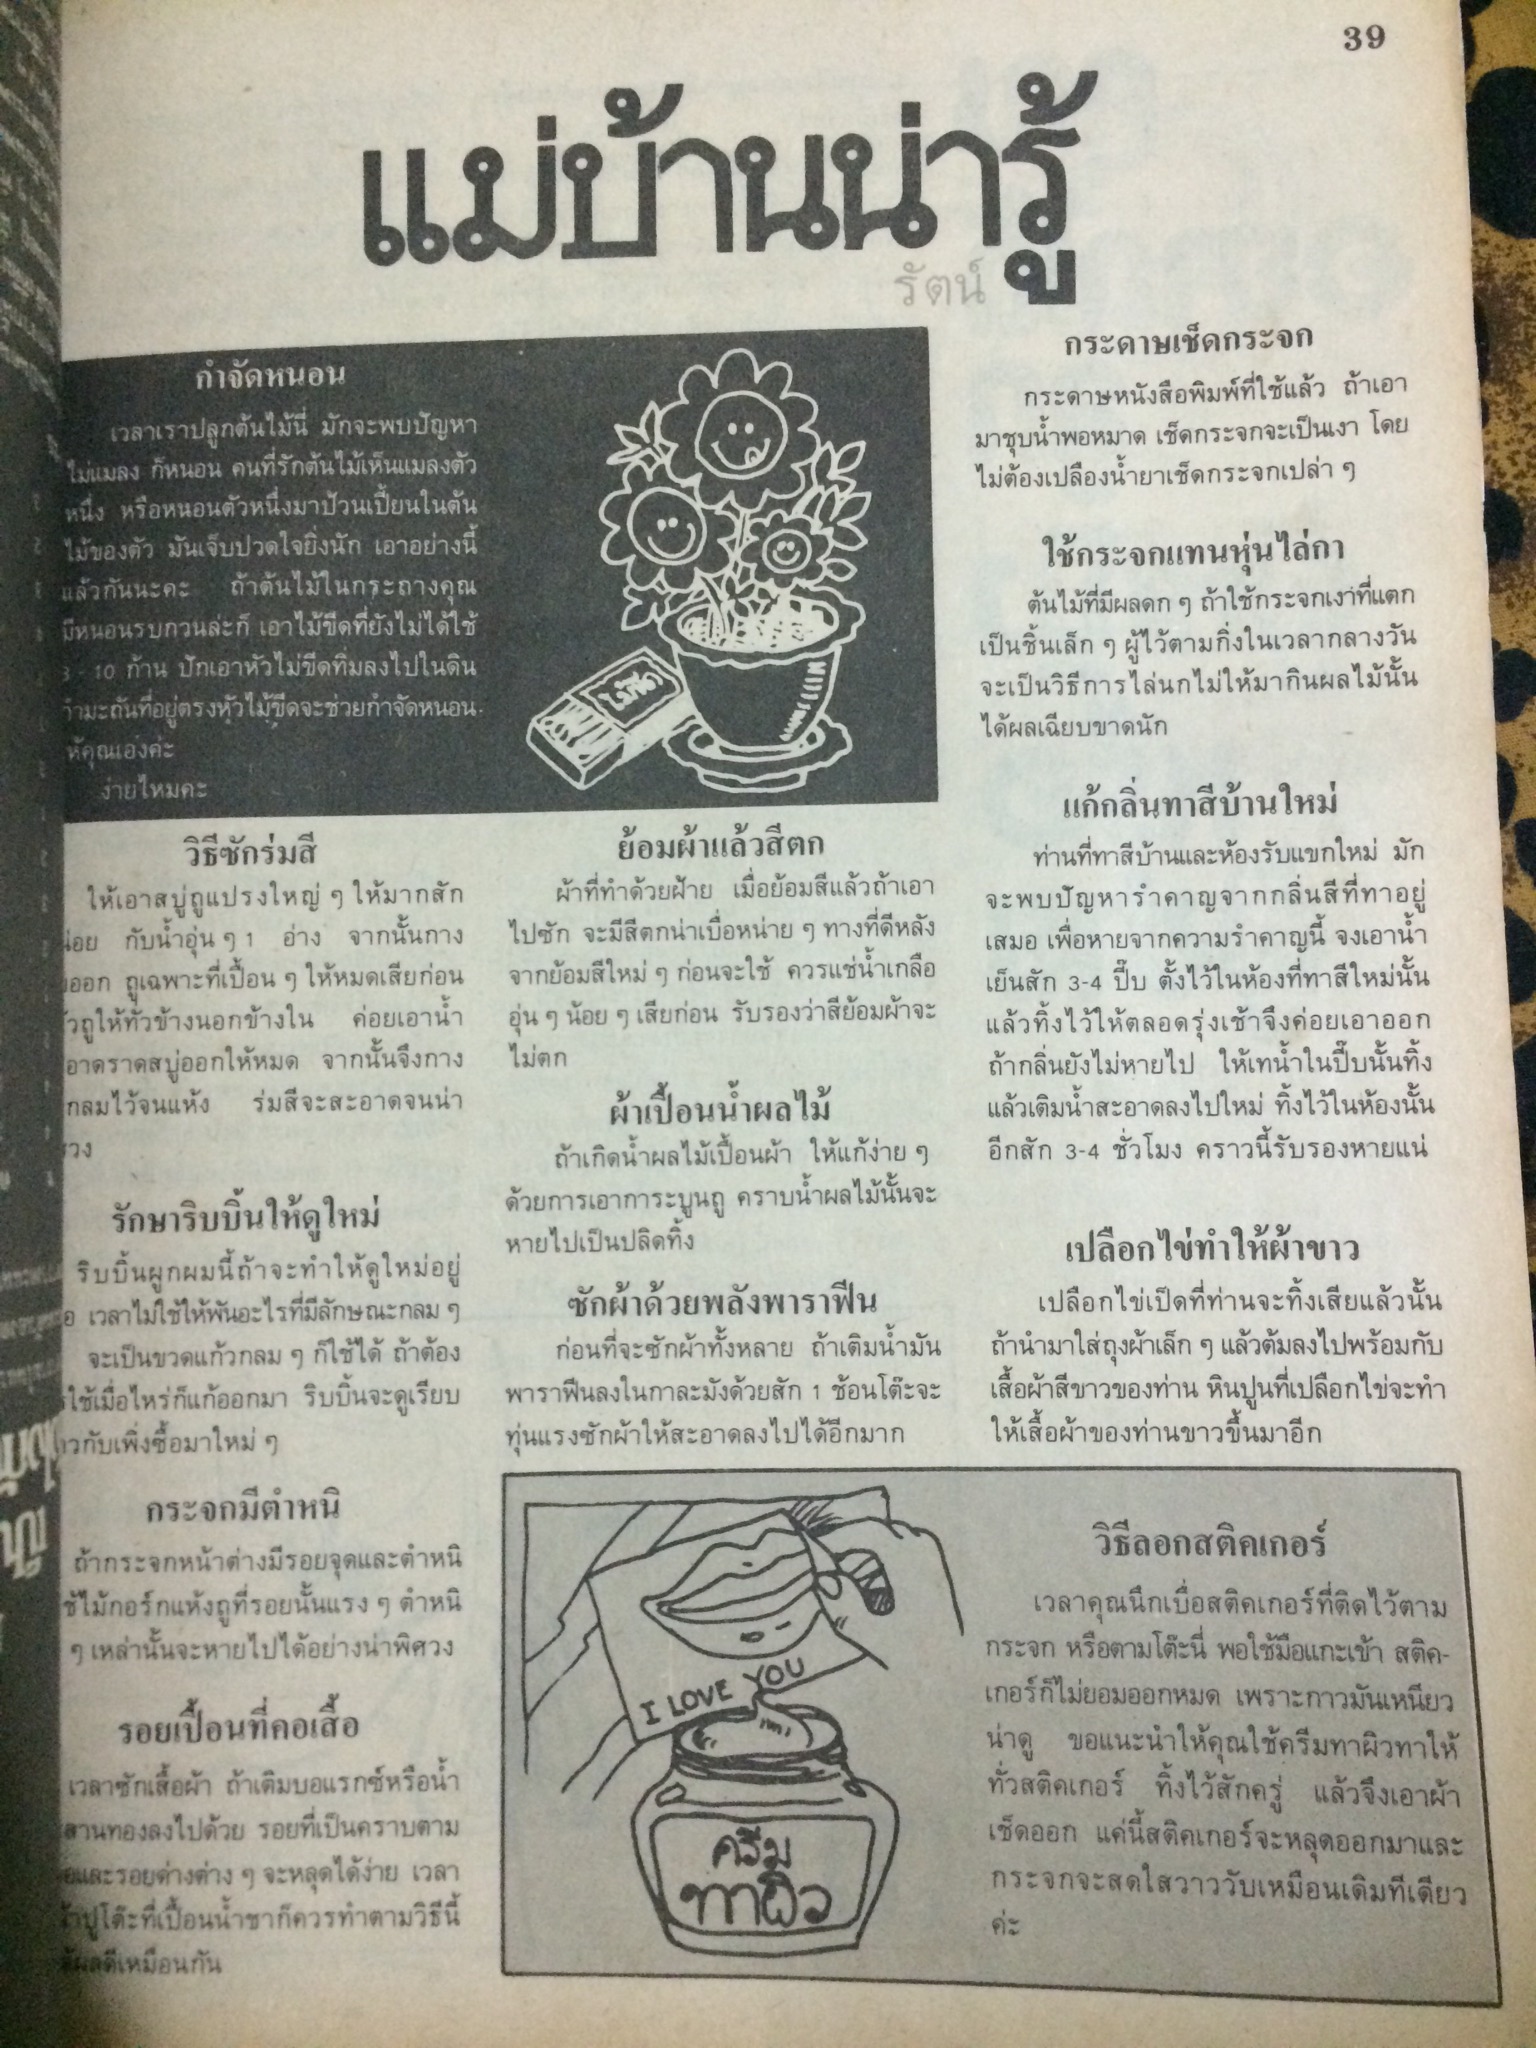 39
แม่บ้านน่ารู้
รัตน์
กำจัดหนอน
เวลาเราปลูกต้นไม้นี่ มักจะพบปัญหา
ไม่แมลง ก็หนอน คนที่รักต้นไม้เห็นแมลงตัว
หนึ่ง หรือหนอนตัวหนึ่งมาป้วนเปี้ยนในต้น
ไม้ของตัว มันเจ็บปวดใจยิ่งนัก เอาอย่างนี้
แล้วกันนะคะ ถ้าต้นไม้ในกระถางคุณ
มีหนอนรบกวนล่ะก็ เอาไม้ขีดที่ยังไม่ได้ใช้
- 10 ก้าน ปักเอาหัวไม้ขีดทิ่มลงไปในดิน
กำมะถันที่อยู่ตรงหัวไม้ขีดจะช่วยกำจัดหนอน
ให้คุณเองค่ะ
ง่ายไหมคะ
ไม้ขีด
วิธีซักร่มสี
ให้เอาสบู่ถูแปรงใหญ่ ๆ ให้มากสัก
น่อย กับน้ำอุ่น ๆ 1 อ่าง จากนั้นกาง
ออก ถูเฉพาะที่เปื้อน ๆ ให้หมดเสียก่อน
ถูให้ทั่วข้างนอกข้างใน ค่อยเอาน้ำ
อาดราดสบู่ออกให้หมด จากนั้นจึงกาง
กลมไว้จนแห้ง ร่มสีจะสะอาดจนน่า
วง
รักษาริบบิ้นให้ดูใหม่
ริบบิ้นผูกผมนี้ถ้าจะทำให้ดูใหม่อยู่
อ เวลาไม่ใช้ให้พันอะไรที่มีลักษณะกลม ๆ
จะเป็นขวดแก้วกลม ๆ ก็ใช้ได้ ถ้าต้อง
ใช้เมื่อไหร่ก็แก้ออกมา ริบบิ้นจะดูเรียบ
าวกับเพิ่งซื้อมาใหม่ ๆ
กระจกมีตำหนิ
ถ้ากระจกหน้าต่างมีรอยจุดและตำหนิ
ช้ไม้กอร์กแห้งถูที่รอยนั้นแรง ๆ ตำหนิ
ๆ เหล่านั้นจะหายไปได้อย่างน่าพิศวง
รอยเปื้อนที่คอเสื้อ
เวลาซักเสื้อผ้า ถ้าเติมบอแรกซ์หรือน้ำ
สานทองลงไปด้วย รอยที่เป็นคราบตาม
และรอยด่างต่าง ๆ จะหลุดได้ง่าย เวลา
ปูโต๊ะที่เปื้อนน้ำชาก็ควรทำตามวิธีนี้
ผลดีเหมือนกัน
ย้อมผ้าแล้วสีตก
ผ้าที่ทำด้วยฝ้าย เมื่อย้อมสีแล้วถ้าเอา
ไปซัก จะมีสีตกน่าเบื่อหน่าย ๆ ทางที่ดีหลัง
จากย้อมสีใหม่ ๆ ก่อนจะใช้ ควรแช่น้ำเกลือ
อุ่น ๆ น้อย ๆ เสียก่อน รับรองว่าสีย้อมผ้าจะ
ไม่ตก
ผ้าเปื้อนน้ำผลไม้
ถ้าเกิดน้ำผลไม้เปื้อนผ้า ให้แก้ง่าย ๆ
ด้วยการเอาการะบูนถู คราบน้ำผลไม้นั้นจะ
หายไปเป็นปลิดทิ้ง
ซักผ้าด้วยพลังพาราฟีน
ก่อนที่จะซักผ้าทั้งหลาย ถ้าเติมน้ำมัน
พาราฟีนลงในกาละมังด้วยสัก 1 ช้อนโต๊ะจะ
ทุ่นแรงซักผ้าให้สะอาดลงไปได้อีกมาก
กระดาษเช็ดกระจก
กระดาษหนังสือพิมพ์ที่ใช้แล้ว ถ้าเอา
มาชุบน้ำพอหมาด เช็ดกระจกจะเป็นเงา โดย
ไม่ต้องเปลืองน้ำยาเช็ดกระจกเปล่า ๆ
ใช้กระจกแทนหุ่นไล่กา
ต้นไม้ที่มีผลดก ๆ ถ้าใช้กระจกเงาที่แตก
เป็นชิ้นเล็ก ๆ ผู้ไว้ตามกิ่งในเวลากลางวัน
จะเป็นวิธีการไล่นกไม่ให้มากินผลไม้นั้น
ได้ผลเฉียบขาดนัก
แก้กลิ่นทาสีบ้านใหม่
ท่านที่ทาสีบ้านและห้องรับแขกใหม่ มัก
จะพบปัญหารำคาญจากกลิ่นสีที่ทาอยู่
เสมอ เพื่อหายจากความรำคาญนี้ จงเอาน้ำ
เย็นสัก 3-4 ปี๊บ ตั้งไว้ในห้องที่ทาสีใหม่นั้น
แล้วทิ้งไว้ให้ตลอดรุ่งเช้าจึงค่อยเอาออก
ถ้ากลิ่นยังไม่หายไป ให้เทน้ำในปี๊บนั้นทิ้ง
แล้วเติมน้ำสะอาดลงไปใหม่ ทิ้งไว้ในห้องนั้น
อีกสัก 3-4 ชั่วโมง คราวนี้รับรองหายแน่
เปลือกไข่ทำให้ผ้าขาว
เปลือกไข่เป็ดที่ท่านจะทิ้งเสียแล้วนั้น
ถ้านำมาใส่ถุงผ้าเล็ก ๆ แล้วต้มลงไปพร้อมกับ
เสื้อผ้าสีขาวของท่าน หินปูนที่เปลือกไข่จะทำ
ให้เสื้อผ้าของท่านขาวขึ้นมาอีก
I LOVE YOU
ครีม
ทาผิว
วิธีลอกสติคเกอร์
เวลาคุณนึกเบื่อสติคเกอร์ที่ติดไว้ตาม
กระจก หรือตามโต๊ะนี่ พอใช้มือแกะเข้า สติค-
เกอร์ก็ไม่ยอมออกหมด เพราะกาวมันเหนียว
น่าดู ขอแนะนำให้คุณใช้ครีมทาผิวทาให้
ทั่วสติคเกอร์ ทิ้งไว้สักครู่ แล้วจึงเอาผ้า
เช็ดออก แค่นี้สติคเกอร์จะหลุดออกมาและ
กระจกจะสดใสวาววับเหมือนเดิมทีเดียว
ค่ะ